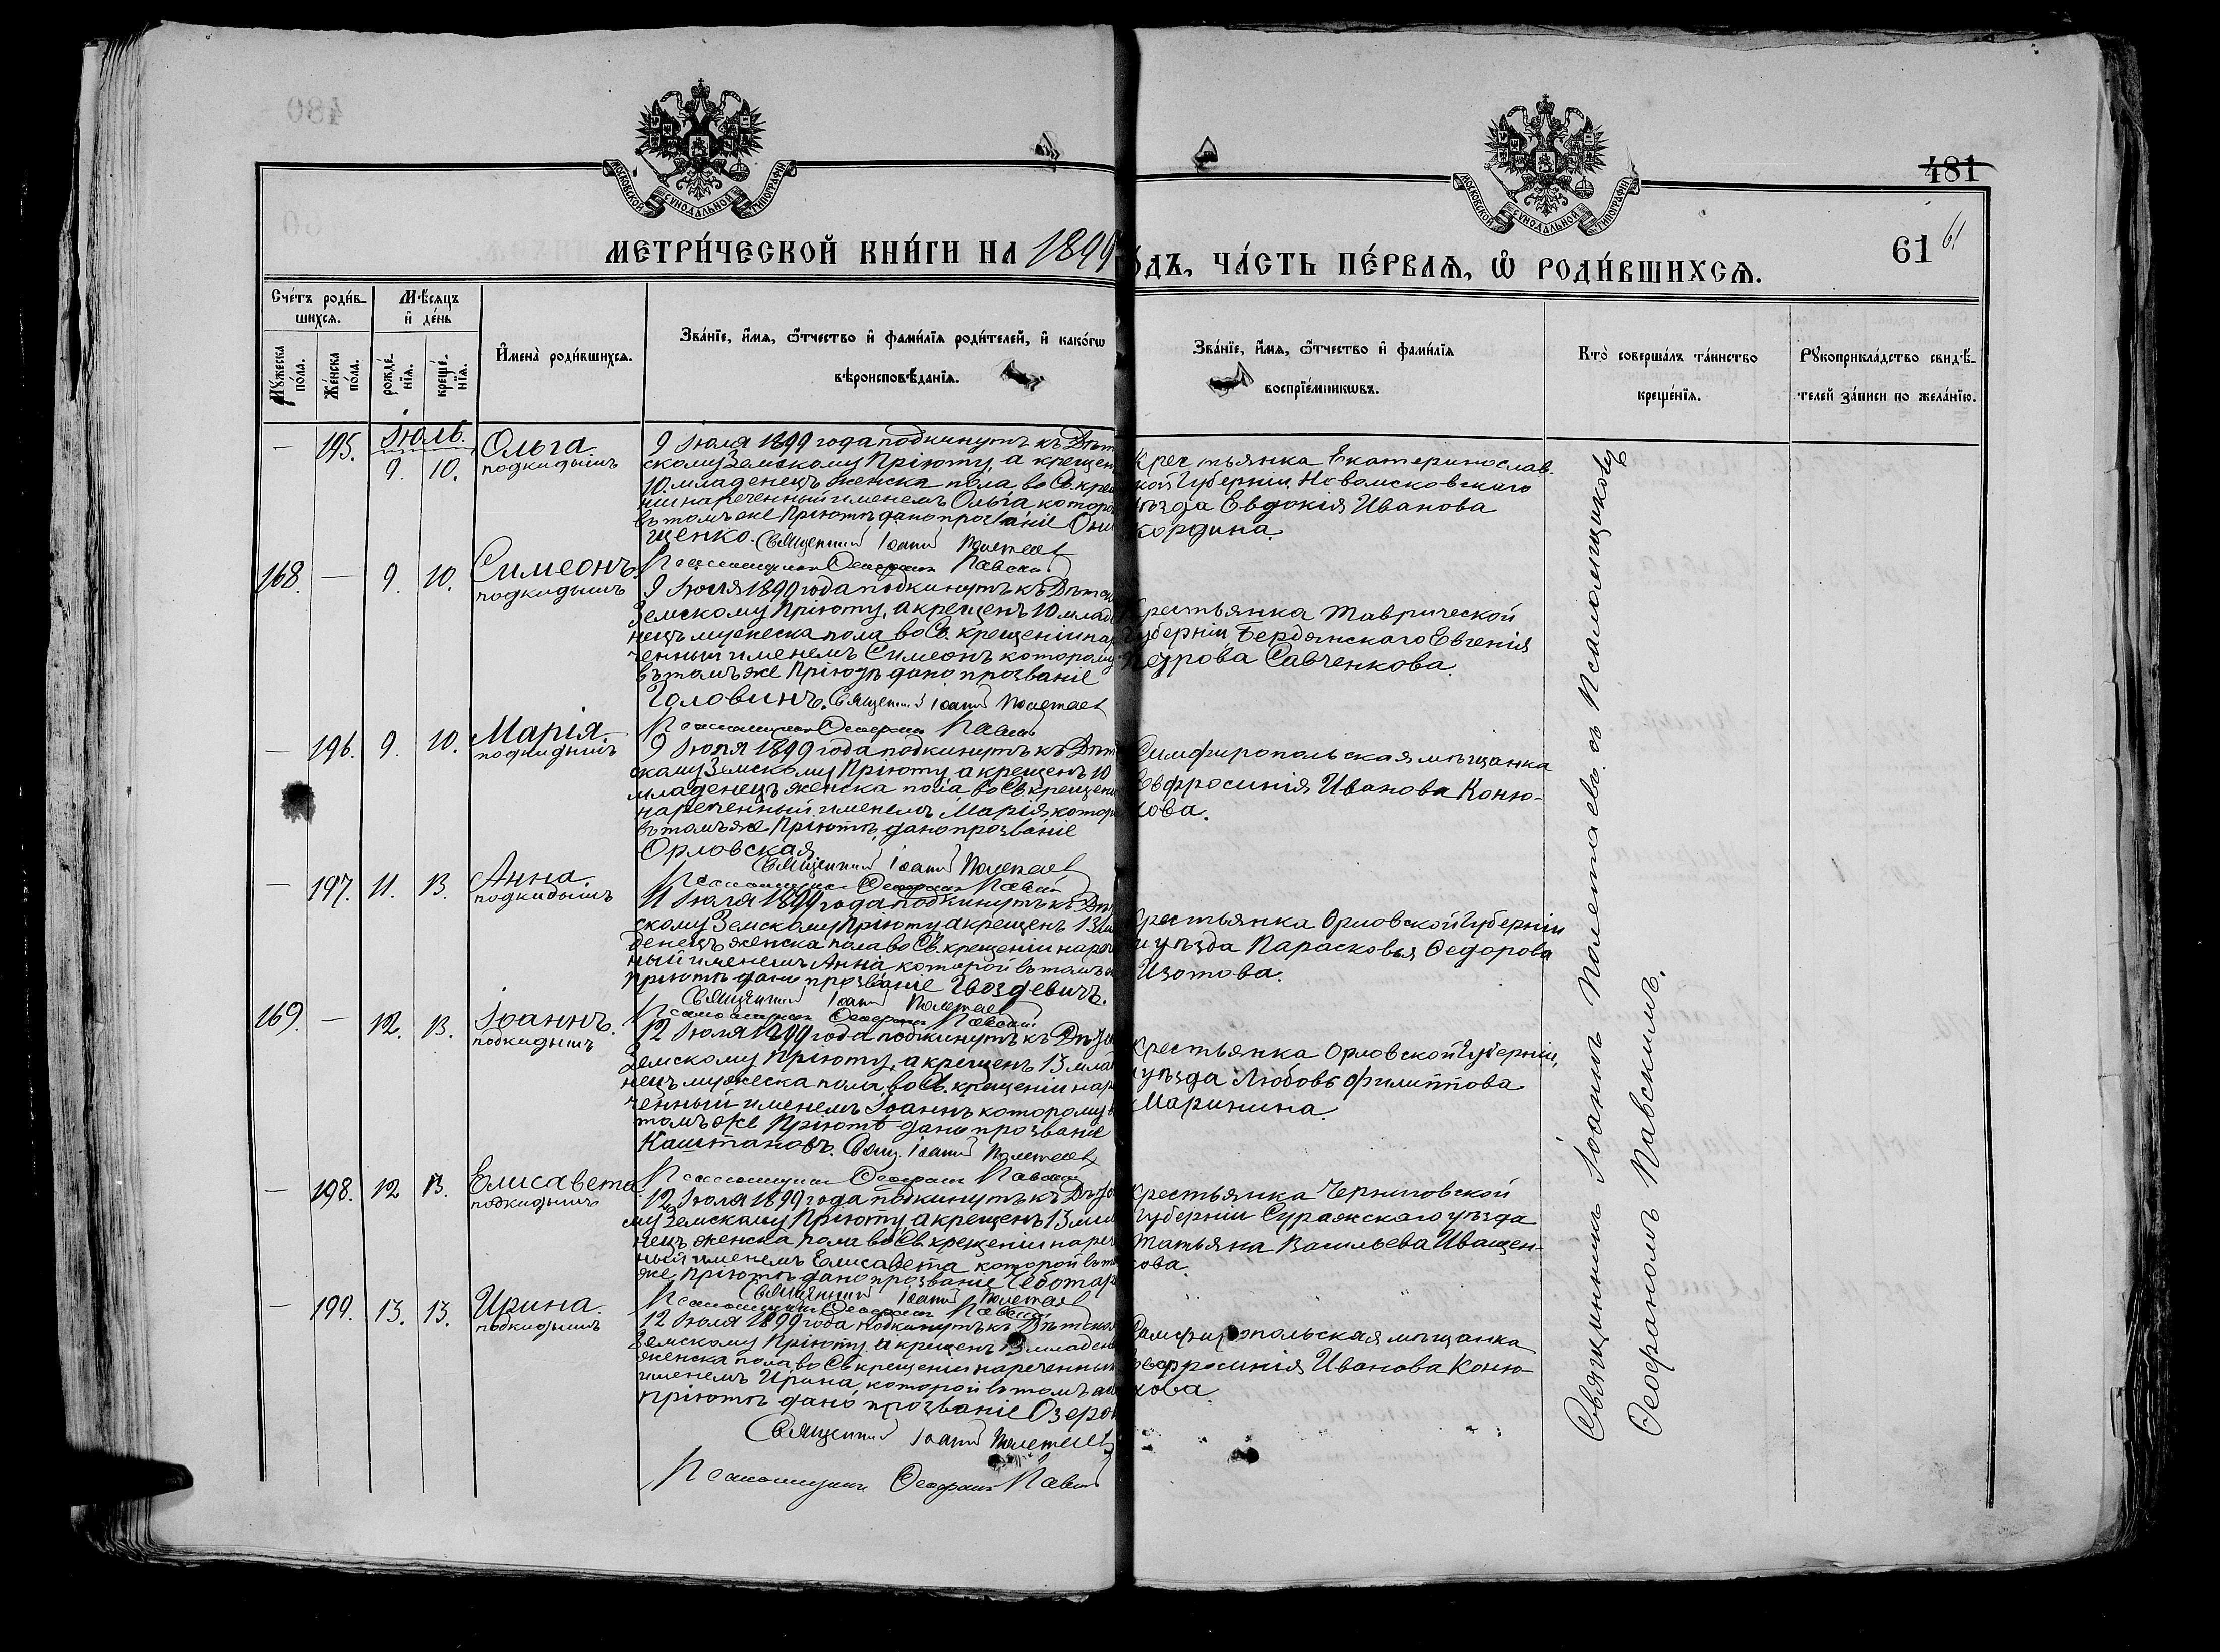 480
481
МОСКОВСКОЙ СѴНОДАЛЬНОЙ ТИПОГРАФІИ
МОСКОВСКОЙ СѴНОДАЛЬНОЙ ТИПОГРАФІИ
61
61
МЕТРИ́ЧЕСКОЙ КНИ́ГИ НА 1899
ДЪ, ЧА́СТЬ ПЕ́РВАѦ, Ѡ҆ РОДИ́ВШИХСѦ.
Сче́тъ роди́в-
шихсѧ.
Мѣ́сѧцъ
и҆ де́нь
Мꙋ́жеска
по́ла.
Же́нска
по́ла.
рожде́-
нїѧ.
креще́-
нїѧ.
И҆мена̀ роди́вшихсѧ.
Зва́нїе, и҆́мѧ, ѻ҆́тчество и҆ фами́лїѧ роди́телей, и҆ како́гѡ
вѣроисповѣ́данїѧ.
Зва́нїе, и҆́мѧ, ѻ҆́тчество и҆ фами́лїѧ
воспрїе́мникѡвъ.
Кто̀ соверша́лъ та́инство
креще́нїѧ.
Рꙋкоприкла́дство свидѣ́-
телей за́писи по жела́нїю.
Іюль.
— 195. 9. 10. Ольга
подкидышъ
9 Іюля 1899 года подкинутъ къ Дѣт
скому Земскому Пріюту, а крещен
10. младенецъ женска пола во Св. кре
ніи нареченный именемъ Ольга, котор
въ томъ же Пріютѣ дано прозваніе Они
щенко. Священник Іоанн Полетаев
Псаломщик Феофан Павски
Крестьянка Екатеринослав-
кой Губерніи Новомосковскаго
ѣзда Евдокія Иванова
кордина.
168. — 9. 10. Симеонъ.
подкидышъ
9 Іюля 1899 года подкинутъ къ Дѣтск
Земскому Пріюту, а крещенъ 10 млад
нецъ мужеска пола во Св. крещеніи нар
ченный именемъ Симеонъ которому
въ томъ же Пріютѣ дано прозваніе
Головинъ. Священник Іоанн Полетаев
Псаломщик Феофан Павски
Крестьянка Таврической
Губерніи Бердянскаго Евгенія
Петрова Савченкова.
— 196. 9. 10. Марія
подкидышъ
9 Іюля 1899 года подкинутъ къ Дѣт
скому Земскому Пріюту, а крещенъ 10
младенецъ женска пола во Св. крещені
нареченный именемъ Марія, котор
въ томъ же Пріютѣ дано прозваніе
Орловская
Священник Іоанн Полетаев
Псаломщик Феофан Павски
Симферопольская мѣщанка
Евфросинія Иванова Коню-
хова.
— 197. 11. 13. Анна
подкидышъ
11 Іюля 1899 года подкинутъ къ Дѣт
скому Земскому Пріюту, а крещенъ 13 мла
денецъ женска пола во Св. крещеніи нареч
ный именемъ Анна которой въ томъ ж
Пріютѣ дано прозваніе Гвоздевичъ.
Священник Іоанн Полетаев
Псаломщик Феофан Павски
Крестьянка Орловской Губерніи
и уѣзда Парасковья Федорова
Изотова.
169. — 12. 13. Іоаннъ.
подкидышъ
12 Іюля 1899 года подкинутъ къ Дѣтск
Земскому Пріюту, а крещенъ 13 млад
нецъ мужеска пола, во Св. крещеніи нар
ченный именемъ Іоаннъ которому в
томъ же Пріютѣ дано прозваніе
Каштановъ. Свящ. Іоанн Полетаев
Псаломщик Феофан Павски
Крестьянка Орловской Губерніи,
и уѣзда Любовь Филиппова
Маринина.
— 198. 12 13. Елисавета
подкидышъ
12 Іюля 1899 года подкинутъ къ Дѣтск
му Земскому Пріюту, а крещенъ 13 мла
нецъ женска пола во Св. крещеніи нареч
ный именемъ Елисавета которой въ то
же Пріютѣ дано прозваніе Чеботар
Священник Іоанн Полетаев
Псаломщик Феофан Павски
Крестьянка Черниговской
Губерніи Суражскаго уѣзда
Татьяна Васильева Иващен-
кова.
— 199. 13. 13. Ирина.
подкидышъ
12 Іюля 1899 года подкинутъ къ Дѣтском
Земскому Пріюту, а крещенъ 13 младен
женска пола во Св. крещеніи нареченный
именемъ Ирина, которой въ томъ же
Пріютѣ дано прозваніе Озеро
Священник Іоанн Полетаев
Псаломщик Феофан Павски
Симферопольская мѣщанка
Евфросинія Иванова Коню-
хова.
Священникъ Іоаннъ Полетаевъ съ Псаломщикомъ
Феофаномъ Павскимъ.